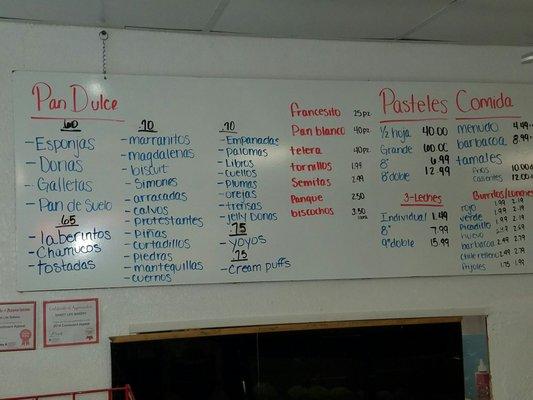 Pan Dulce
.60
- Esponjas
- Donas
- Galletas
- Pan de Suelo
.65
- laberintos
- Chamucos
- tostadas
.70
- marranitos
- magdalenas
- biscuit
- Simones
- arracadas
- calvos
- protestantes
- Piñas
- cortadillos
- piedras
- mantequillas
- cuernos
.70
- Empanadas
- Palomas
- Libros
- cuellos
- Plumas
- orejas
- trensas
- Jelly Donas
.75
- yoyos
.75
- cream puffs
francesito 25pz
Pan blanco 40pz
telera 40pz
tornillos 1.99
Semitas 2.99
Panque 2.50
biscochos 3.50
Pasteles
1/2 hoja 40.00
Grande 60.00
8" 6.99
8" doble 12.99
3-Leches
Individual 1.49
8" 7.99
9" doble 15.99
Comida
menudo 4.99
barbacoa 8.99
tamales
frios 10.00
calientes 12.00
Burritos/Lonches
rojo 1.99 2.19
verde 1.99 2.19
Picadillo 1.99 2.19
huevo 2.49 2.69
barbacoa 2.49 2.79
chile relleno 2.49 2.79
frijoles 1.75 1.99